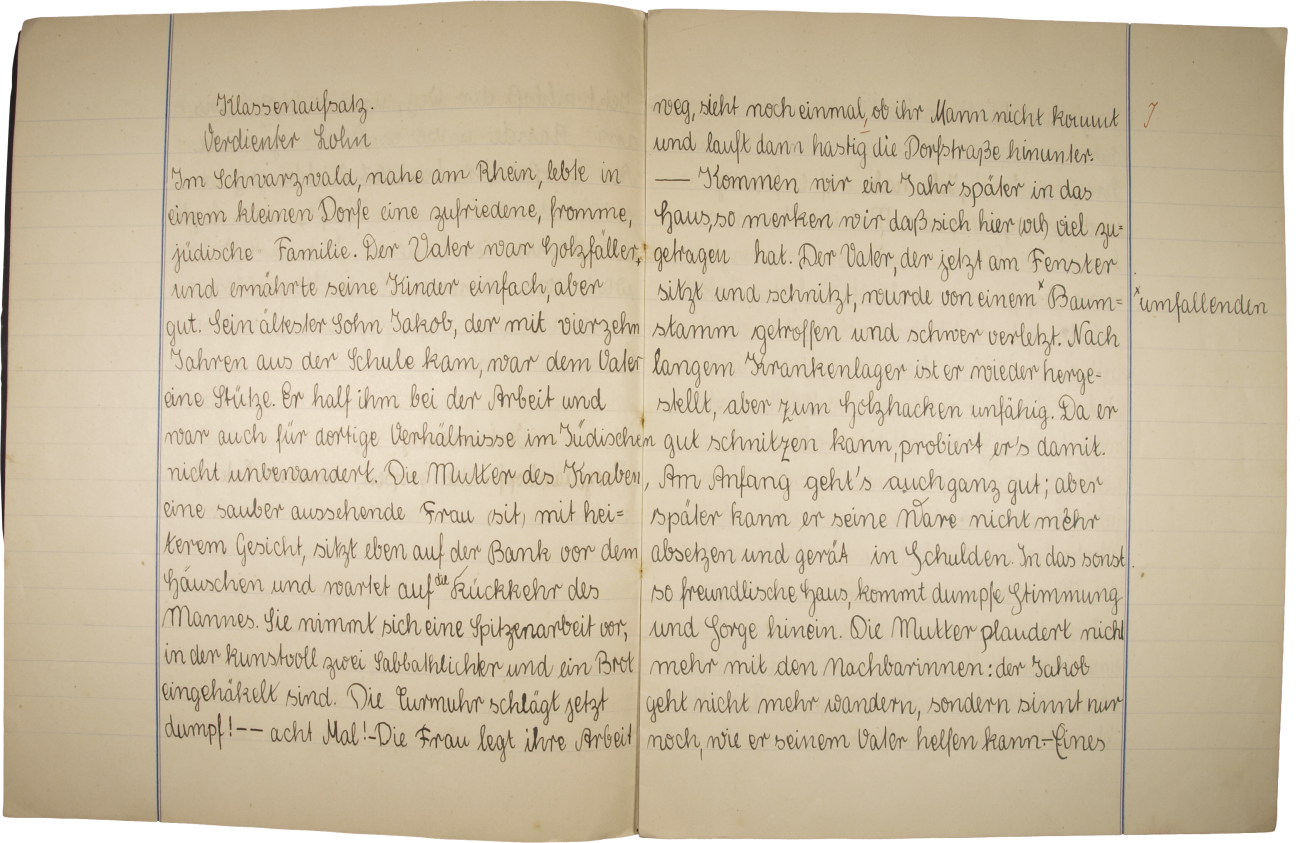 Klassenaufsatz.
Verdienter Lohn
Im Schwarzwald, nahe am Rhein, lebte in
einem kleinen Dorfe eine zufriedene, fromme,
jüdische Familie. Der Vater war Holzfäller,
und ernährte seine Kinder einfach, aber
gut. Sein ältester Sohn Jakob, der mit vierzehn
Jahren aus der Schule kam, war dem Vater
eine Stütze. Er half ihm bei der Arbeit und
war auch für dortige Verhältnisse im Jüdischen
nicht unbewandert. Die Mutter des Knaben,
eine sauber aussehende Frau (sit) mit hei=
terem Gesicht, sitzt eben auf der Bank vor dem
Häuschen und wartet auf die Rückkehr des
Mannes. Sie nimmt sich eine Spitzenarbeit vor,
in der kunstvoll zwei Sabbathlichter und ein Brot
eingehäkelt sind. Die Turmuhr schlägt jetzt
dumpf! -- acht Mal! - Die Frau legt ihre Arbeit
weg, sieht noch einmal, ob ihr Mann nicht kommt
und lauft dann hastig die Dorfstraße hinunter.
— Kommen wir ein Jahr später in das
Haus, so merken wir daß sich hier viel zu=
getragen hat. Der Vater, der jetzt am Fenster
sitzt und schnitzt, wurde von einem x Baum=
x umfallenden
stamm getroffen und schwer verletzt. Nach
langem Krankenlager ist er wieder herge-
stellt, aber zum Holzhacken unfähig. Da er
gut schnitzen kann, probiert er's damit.
Am Anfang geht's auch ganz gut; aber
später kann er seine Ware nicht mehr
absetzen und gerät in Schulden. In das sonst
so freundlische Haus, kommt dumpfe Stimmung
und Sorge hinein. Die Mutter plaudert nicht
mehr mit den Nachbarinnen: der Jakob
geht nicht mehr wandern, sondern sinnt nur
noch, wie er seinem Vater helfen kann. - Eines